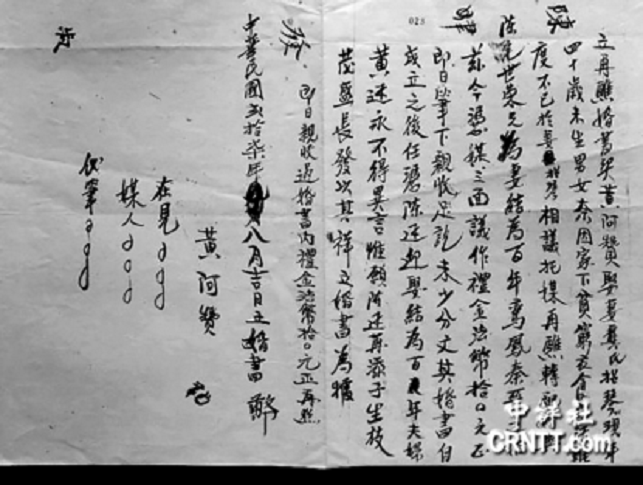 立再醮婚書契黃阿贊娶妻龔氏招琴現年
四十歲未生男女奈因家下貧窮衣食
度不已於妻招琴相議托媒再醮轉配
陳
世榮兄為妻結為百年鸞鳳秦晉
茲今憑媒三面議作禮金法幣拾〇元正
即日筆下親收足訖未少分文其婚書自
成立之後任憑陳迎起娶結為百年夫婦
黃
永不得異言惟願陳
再添子生枝
茂盛長發以其祥立婚書為據
即日親收過婚書內禮金法幣拾〇元正再照
中華民國貳拾柒年八月吉日立婚書
黃阿贊
在見
媒人
代筆
028
中評社
CRNTT.com